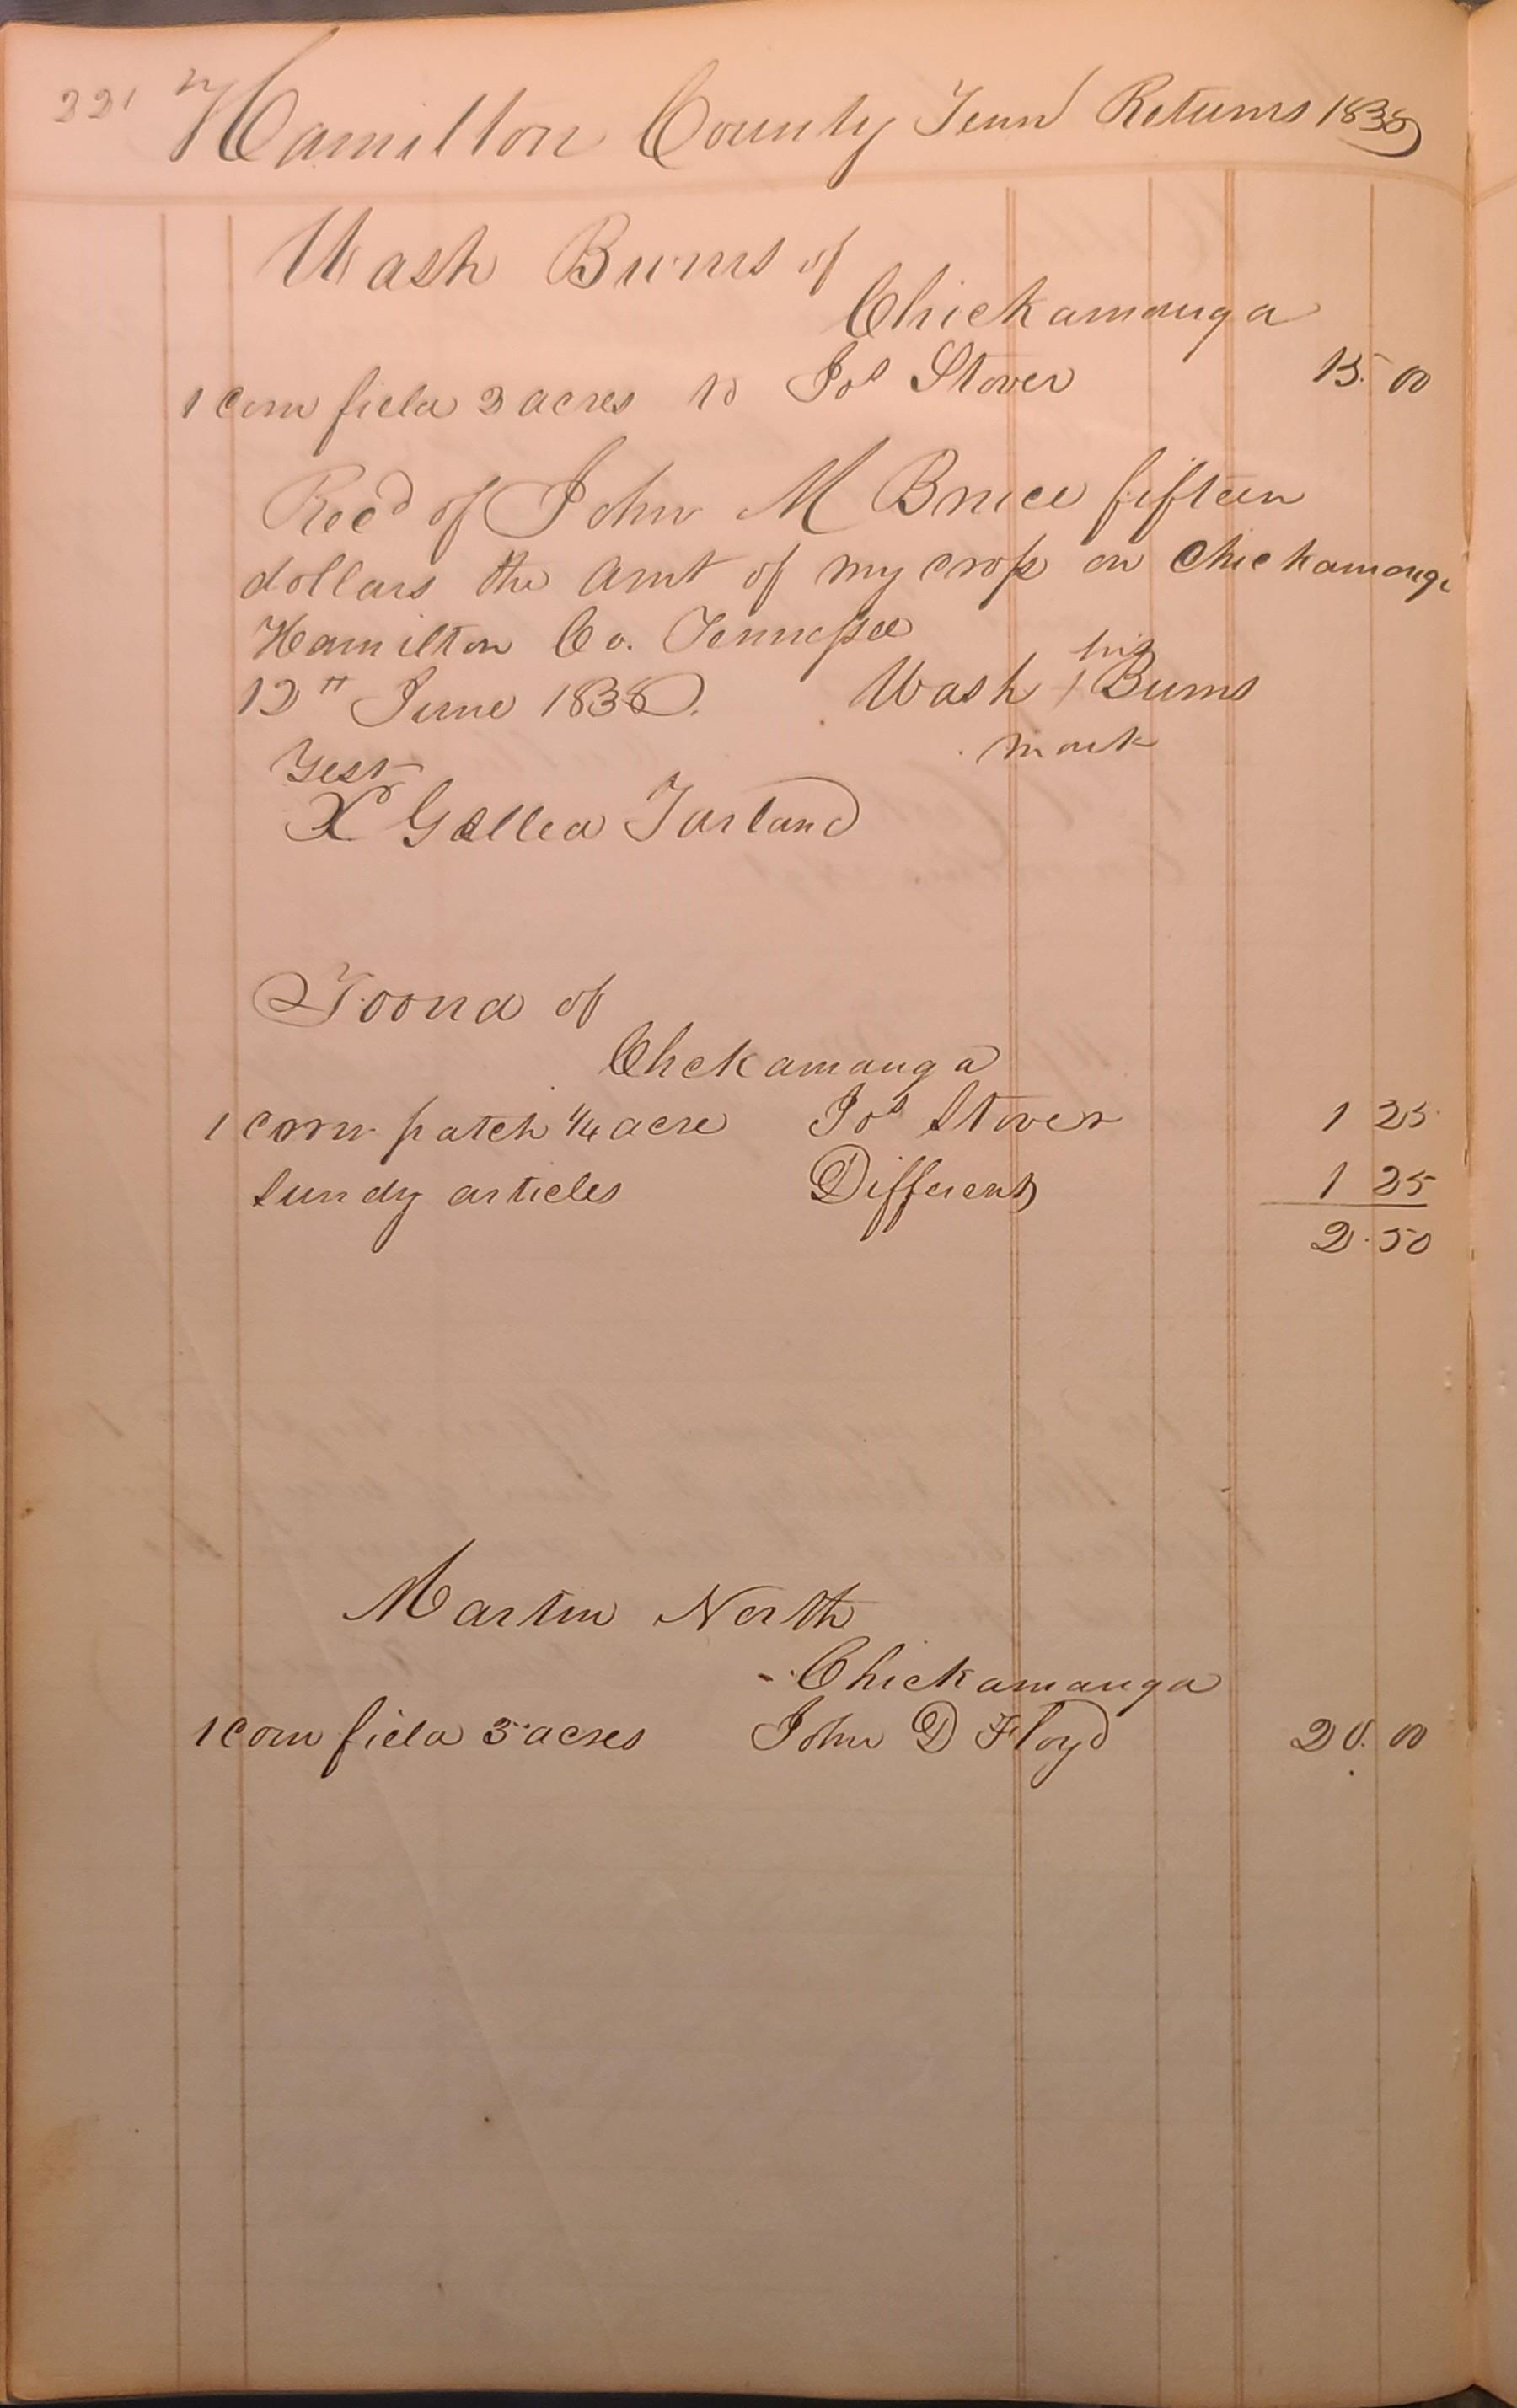 221 Hamilton County Tenn Returns 1838
Wash Burns of
Chickamauga
1 Corn field 3 acres to Jos Stover 15.00
Recd of John M Brice fifteen
dollars the amt of my crop on Chickamauga
Hamilton Co. Tennessee
12th June 1838. Wash his + Burns
mark
Test
X Gallea Tarland
Toona of
Chekamauga
1 Corn patch 1/4 acre Jos Stover 1 25
Sundy articles Different 1 25
2.50
Martin North
Chickamauga
1 Corn field 5 acres John D Floyd 20.00